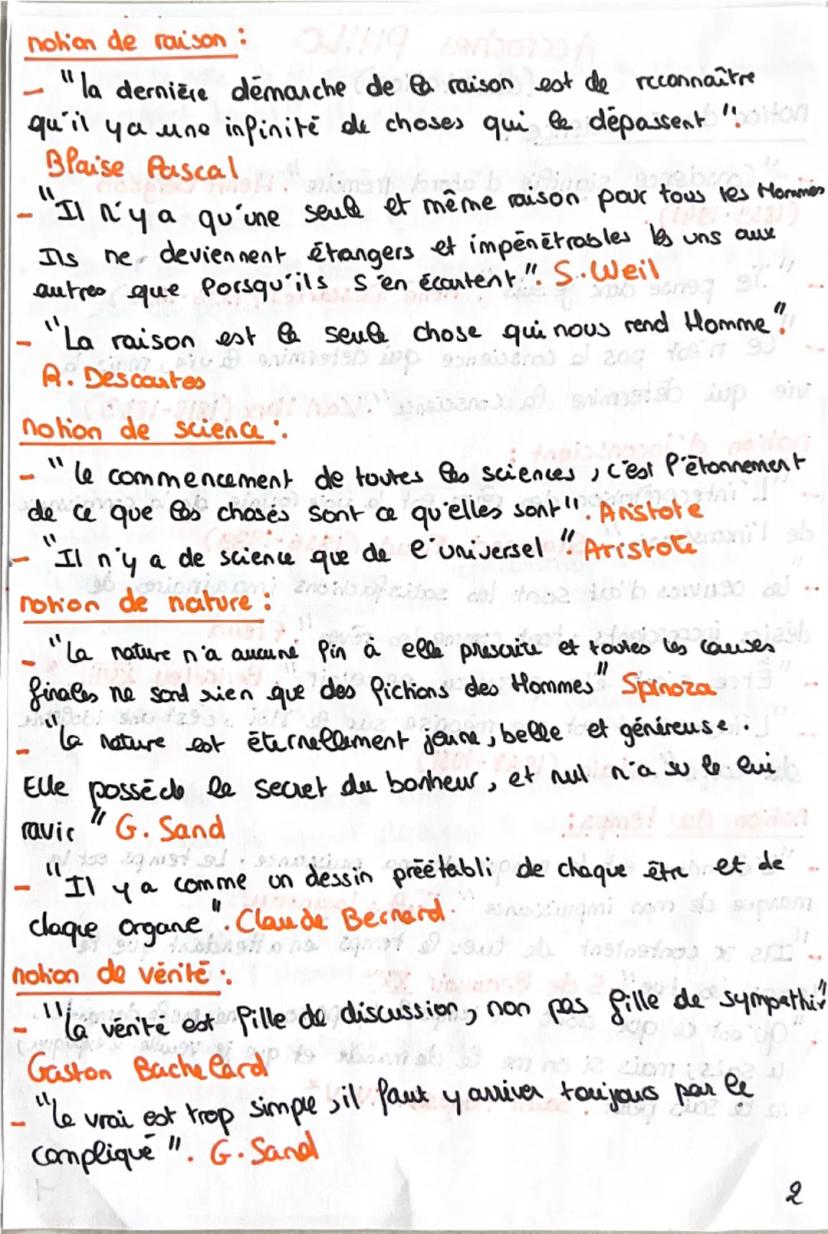 notion de raison :
- "la dernière démarche de la raison est de reconnaître
qu'il y a une infinité de choses qui la dépassent".
Blaise Pascal
- "Il n'y a qu'une seule et même raison pour tous les Hommes
Ils ne deviennent étrangers et impénétrables les uns aux
autres que lorsqu'ils s'en écartent". S. Weil
- "La raison est la seule chose qui nous rend Homme".
R. Descartes
notion de science :
- "Le commencement de toutes les sciences, c'est l'étonnement
de ce que les choses sont ce qu'elles sont". Aristote
- "Il n'y a de science que de l'universel" Aristote
notion de nature :
- "La nature n'a aucune fin à elle prescrite et toutes les causes
finales ne sont rien que des fictions des Hommes" Spinoza
- "la nature est éternellement jeune, belle et généreuse.
Elle possède le secret du bonheur, et nul n'a su le lui
ravir" G. Sand
- "Il y a comme un dessin préétabli de chaque être et de
chaque organe". Claude Bernard.
notion de vérité.
- "la vérité est fille de discussion, non pas fille de sympathie"
Gaston Bachelard
- "Le vrai est trop simple, il faut y arriver toujours par le
compliqué". G. Sand
2